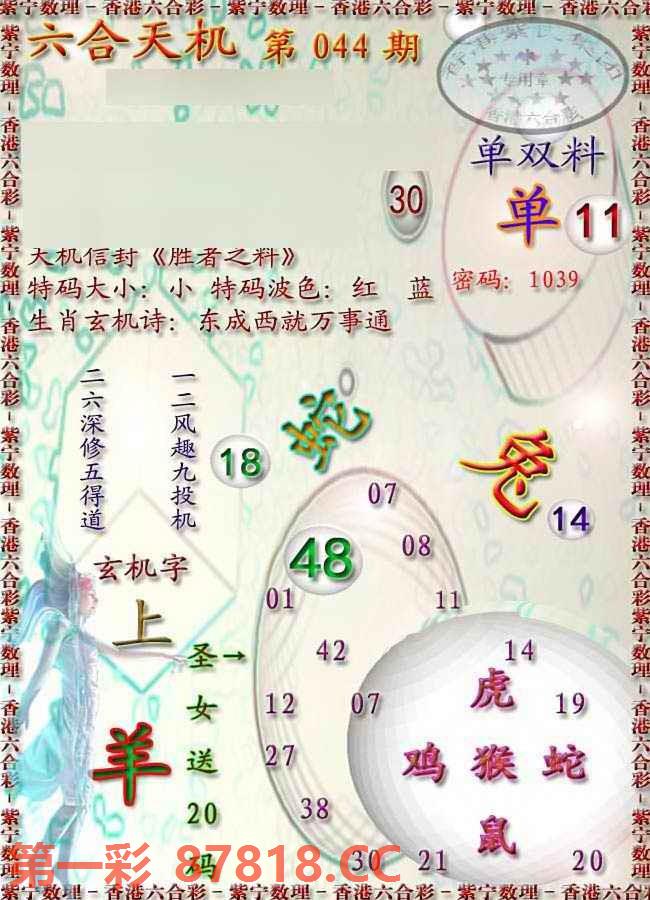 紫宁数理－香港六合彩－紫宁数理－香港六合彩－紫宁数理－香港六合彩
六合天机 第 044 期
专用章
香港六合彩
单双料
单 11
30
天机信封《胜者之料》
特码大小：小 特码波色：红 蓝
密码：1039
生肖玄机诗：东成西就万事通
一二风趣九投机
二六深修五得道
蛇
18
兔
14
07
48
08
玄机字
上
01
11
圣→
女
送
20
码
42
14
虎
12
07
19
羊
鸡 猴 蛇
27
38
鼠
30
21
20
第一彩 87818.CC
紫宁数理－香港六合彩－紫宁数理－香港六合彩－紫宁数理－香港六合彩